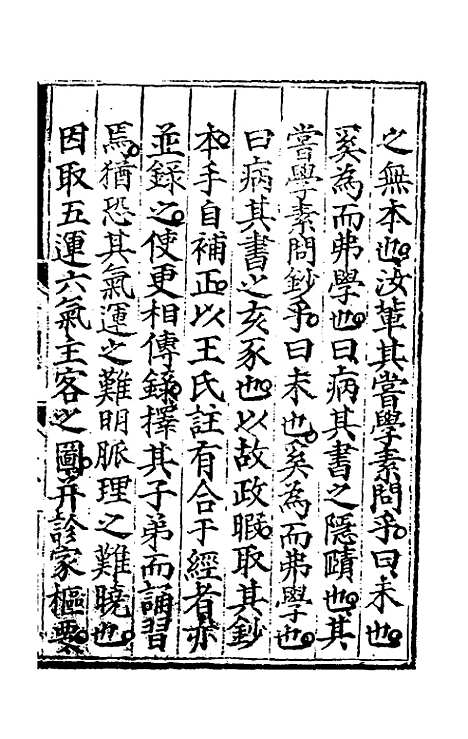 之無本也汝輩其嘗學素問乎曰未也
奚為而弗學也曰病其書之隱賾也其
嘗學素問鈔乎曰未也奚為而弗學也
曰病其書之亥豕也以故政暇取其鈔
本手自補正以王氏註有合于經者亦
並錄之使更相傳錄擇其子弟而誦習
焉猶恐其氣運之難明脈理之難曉也
因取五運六氣主客之圖并診家樞要